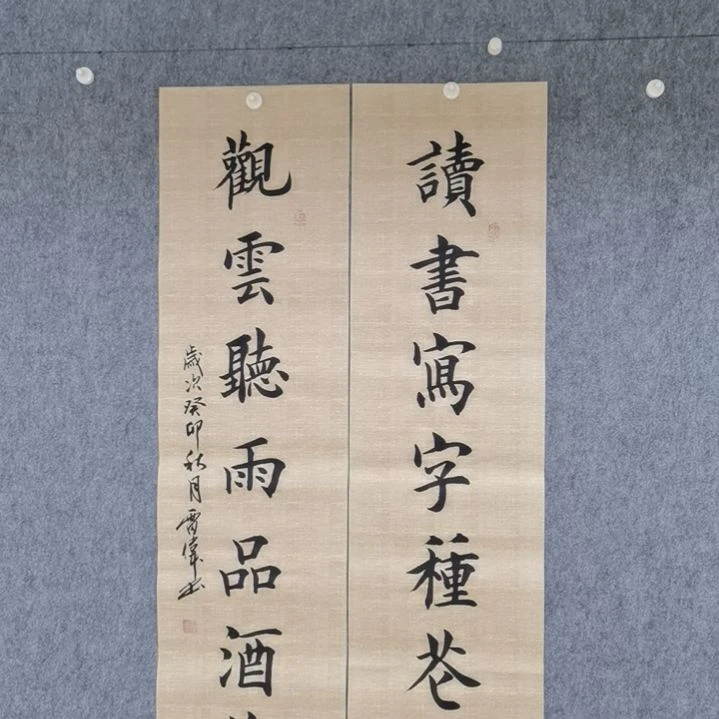 讀書寫字種花
觀雲聽雨品酒
歲次癸卯秋月雷偉書